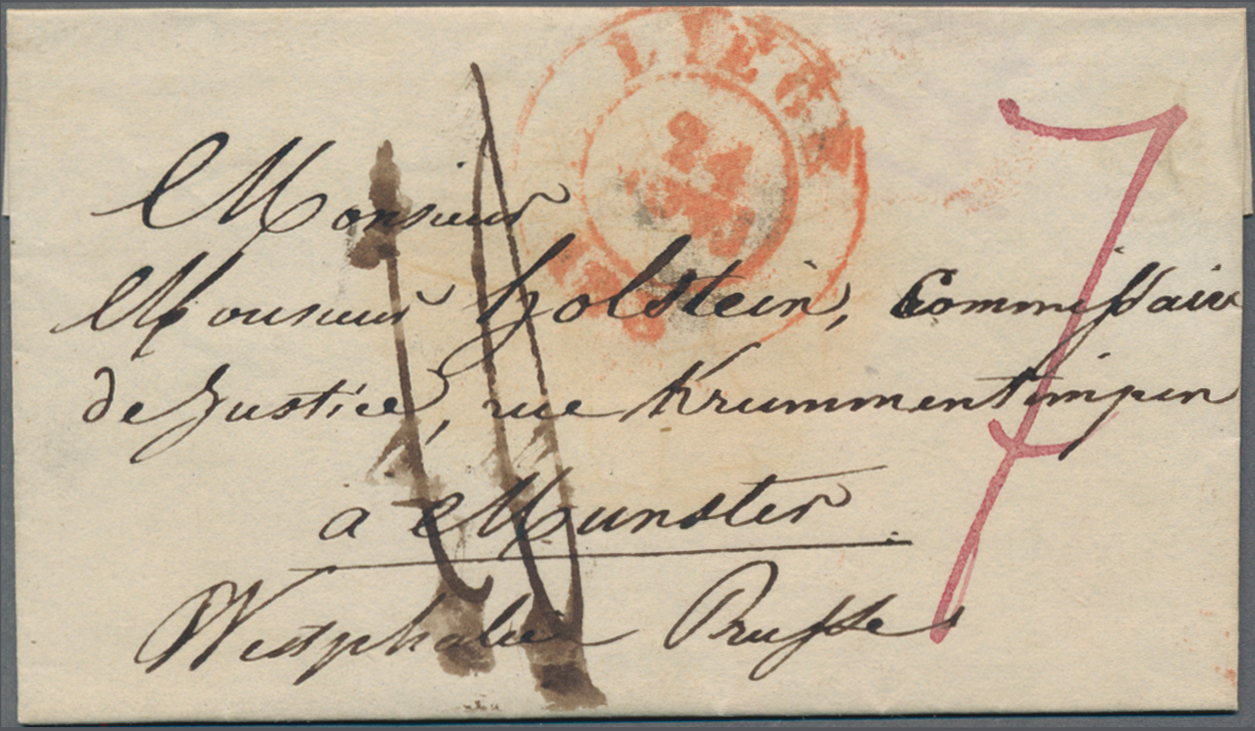 LIEGE
Monsieur
Monsieur Holstein, Commissaire
de Justice, rue Krummentimpen
à Munster
Westphalie Prusse
7